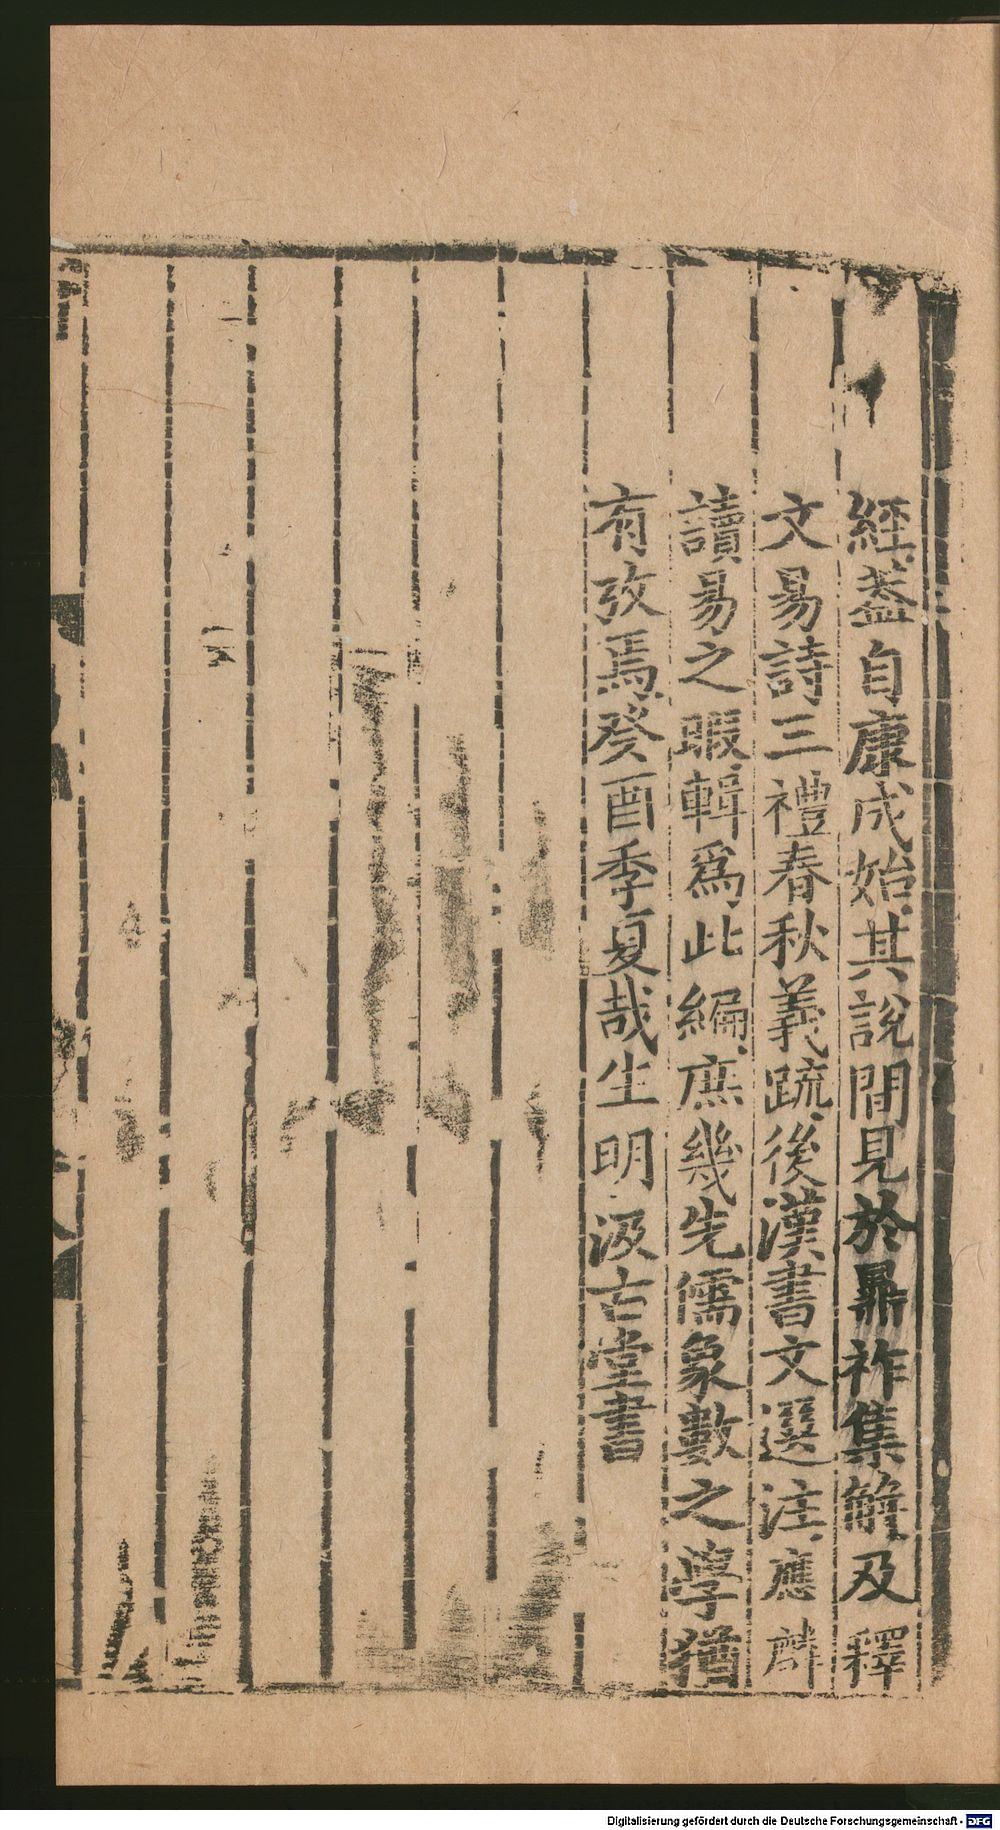 經蓋自康成始其說間見於鼎祚集解及釋
文易詩三禮春秋義疏後漢書文選注應麟
讀易之暇輯爲此編庶幾先儒象數之學猶
有攷焉癸酉季夏哉生明汲古堂書
Digitalisierung gefördert durch die Deutsche Forschungsgemeinschaft - DFG